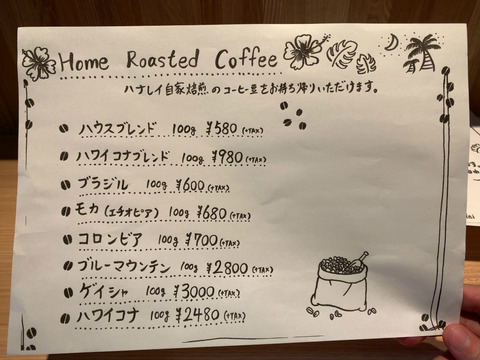 Home Roasted Coffee
ハナレイ自家焙煎のコーヒー豆をお持ち帰りいただけます。
ハウスブレンド 100g ¥580 (+TAX)
ハワイコナブレンド 100g ¥980 (+TAX)
ブラジル 100g ¥600 (+TAX)
モカ (エチオピア) 100g ¥680 (+TAX)
コロンビア 100g ¥700 (+TAX)
ブルーマウンテン 100g ¥2800 (+TAX)
ゲイシャ 100g ¥3000 (+TAX)
ハワイコナ 100g ¥2480 (+TAX)